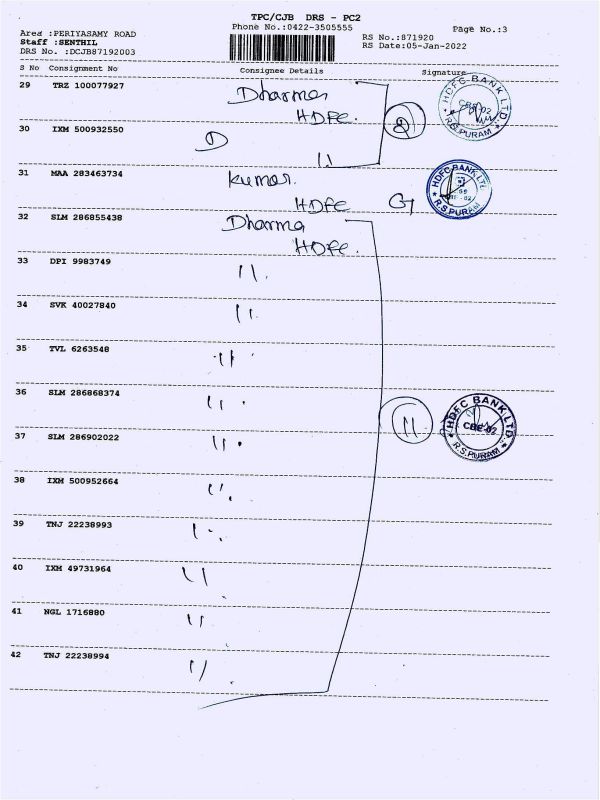 TPC/CJB DRS - PC2
Phone No.:0422-3505555
Page No.:3
Area :PERIYASAMY ROAD
Staff :SENTHIL
DRS No. :DCJB87192003
RS No.:871920
RS Date:05-Jan-2022
S No Consignment No Consignee Details Signature
29 TRZ 100077927 Dharma
HDFC. 2
HDFC BANK LTD
CBE-02
R.S.PURAM
30 IXM 500932550 D
11
31 MAA 283463734 Kumar.
HDFC
HDFC BANK LTD
R.S.PURAM
32 SLM 286855438 Dharma
HDFC.
33 DPI 9983749 11.
34 SVK 40027840 11.
35 TVL 6263548 11
36 SLM 286868374 11.
37 SLM 286902022 11.
HDFC BANK LTD
11 CBE-02
R.S.PURAM
38 IXM 500952664 11.
39 TNJ 22238993 11.
40 IXM 49731964 11
41 NGL 1716880 11
42 TNJ 22238994 11